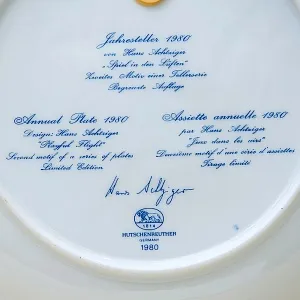 Jahresteller 1980
von Hans Achtziger
"Spiel in den Lüften"
Zweites Motiv einer Tellerserie
Begrenzte Auflage
Annual Plate 1980
Design: Hans Achtziger
"Playful Flight"
Second motif of a series of plates
Limited Edition
Assiette annuelle 1980
par Hans Achtziger
"Jeux dans les airs"
Deuxième motif d'une série d'assiettes
Tirage limité
Hans Achtziger
1814
HUTSCHENREUTHER
GERMANY
1980